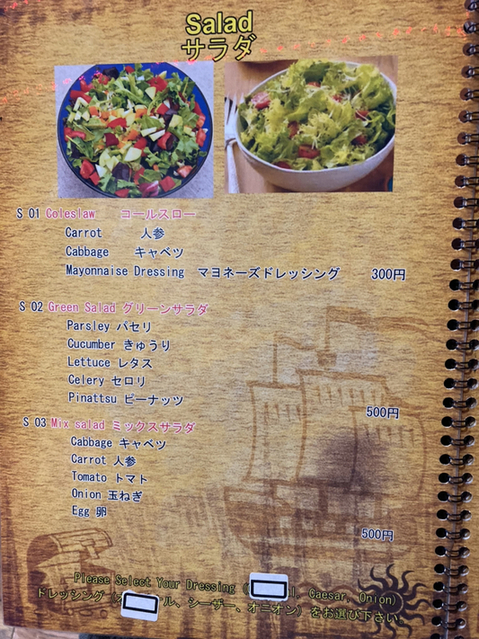 Salad
サラダ
S 01 Coleslaw コールスロー
Carrot 人参
Cabbage キャベツ
Mayonnaise Dressing マヨネーズドレッシング 300円
S 02 Green Salad グリーンサラダ
Parsley パセリ
Cucumber きゅうり
Lettuce レタス
Celery セロリ
Pinattsu ピーナッツ
500円
S 03 Mix salad ミックスサラダ
Cabbage キャベツ
Carrot 人参
Tomato トマト
Onion 玉ねぎ
Egg 卵
500円
Please Select Your Dressing ( l, Caesar, Onion)
ドレッシング( ール、シーザー、オニオン) をお選び下さい